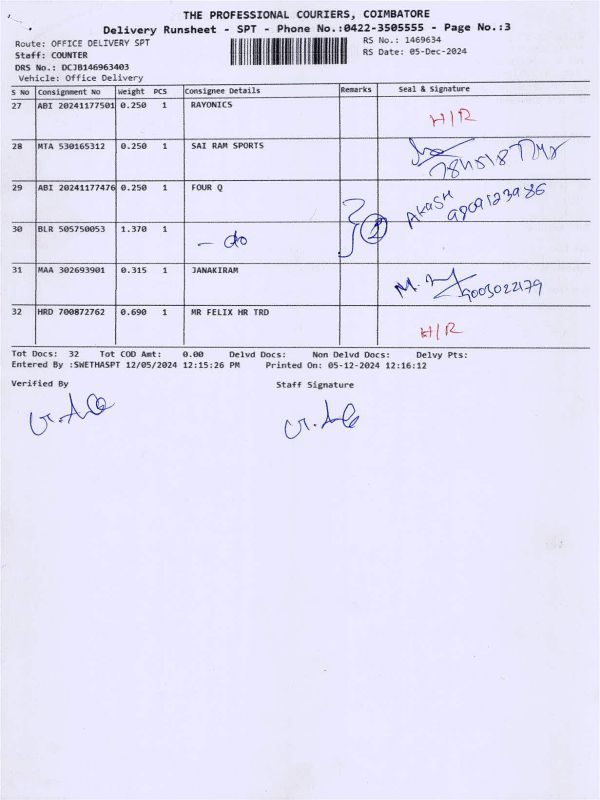 THE PROFESSIONAL COURIERS, COIMBATORE
Delivery Runsheet - SPT - Phone No.:0422-3505555 - Page No.:3
Route: OFFICE DELIVERY SPT
RS No.: 1469634
Staff: COUNTER
RS Date: 05-Dec-2024
DRS No.: DCJB146963403
Vehicle: Office Delivery
S No Consignment No Weight PCS Consignee Details Remarks Seal & Signature
27 ABI 20241177501 0.250 1 RAYONICS H/R
28 MTA 530165312 0.250 1 SAI RAM SPORTS
29 ABI 20241177476 0.250 1 FOUR Q AKASH 9909123986
30 BLR 505750053 1.370 1 - do 2
31 MAA 302693901 0.315 1 JANAKIRAM 9003022179
32 HRD 700872762 0.690 1 MR FELIX HR TRD H/R
Tot Docs: 32 Tot COD Amt: 0.00 Delvd Docs: Non Delvd Docs: Delvy Pts:
Entered By :SWETHASPT 12/05/2024 12:15:26 PM Printed On: 05-12-2024 12:16:12
Verified By Staff Signature